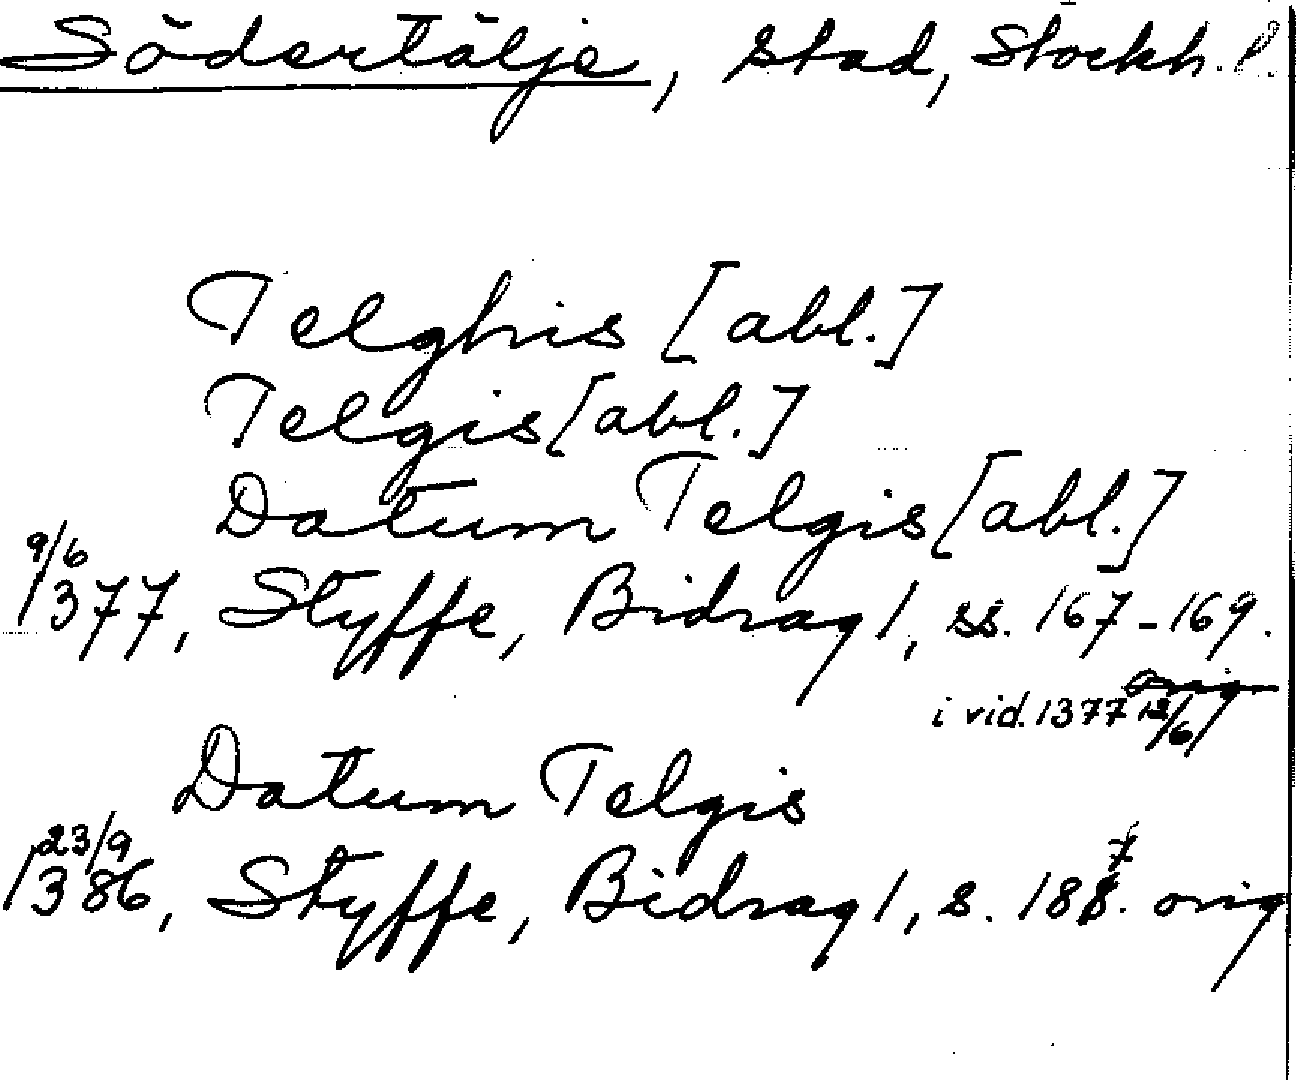 Södertälje, stad, Stockh. l
Telghis [abl.]
Telgis [abl.]
Datum Telgis [abl.]
9/6
1377, Styffe, Bidrag 1, ss. 167-169.
orig
i vid. 1377 12/6
Datum Telgis
23/9
1386, Styffe, Bidrag 1, s. 187. orig